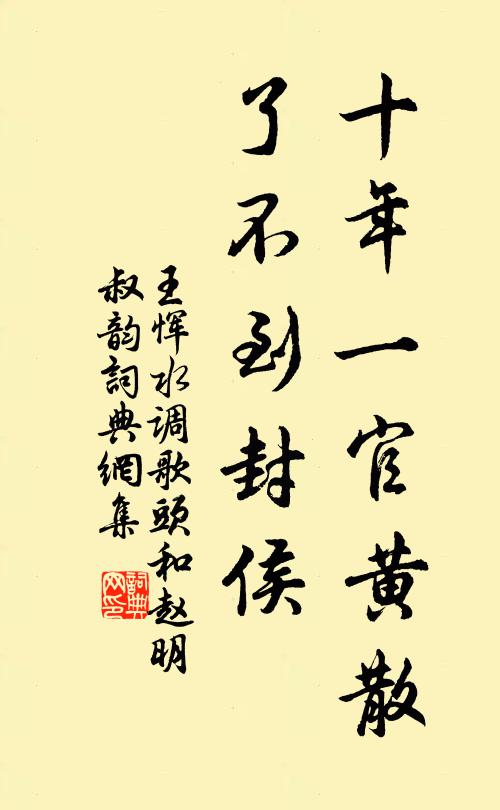 十年一官黄散
了不到封侯
王恽水调歌頭和赵明
叔韵詞典網集
詞典网印